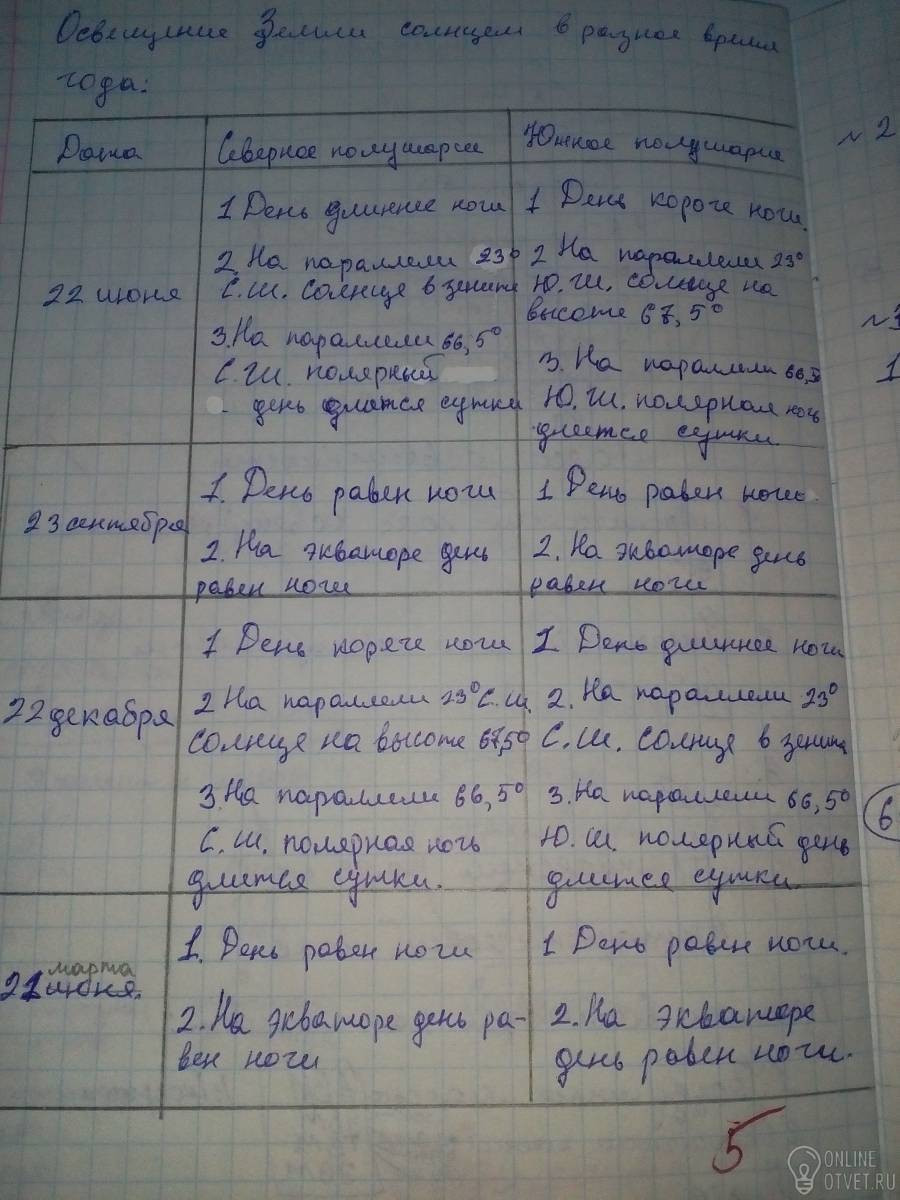 Освещение Земли солнцем в разное время
года:
Дата
Северное полушарие
Южное полушарие
22 июня
1 День длиннее ночи
2. На параллели 23°
С.Ш. солнце в зените
3. На параллели 66,5°
С.Ш. полярный
день длится сутки
1 День короче ночи.
2 На параллели 23°
Ю.Ш. солнце на
высоте 67,5°
3. На параллели 66,5
Ю.Ш. полярная ночь
длится сутки.
23 сентября
1. День равен ночи
2. На экваторе день
равен ночи
1 День равен ночи.
2. На экваторе день
равен ночи
22 декабря
1 День короче ночи
2 На параллели 23° С.ш.
солнце на высоте 67,5°
3. На параллели 66,5°
С.Ш. полярная ночь
длится сутки.
1. День длиннее ночи
2. На параллели 23°
С.Ш. солнце в зените
3. На параллели 66,5°
Ю.Ш. полярный день
длится сутки.
марта
21 июня.
1. День равен ночи
2. На экваторе день ра-
вен ночи
1 День равен ночи.
2. На экваторе
день равен ночи.
5
№2
1
6
ONLINE
OTVET.RU